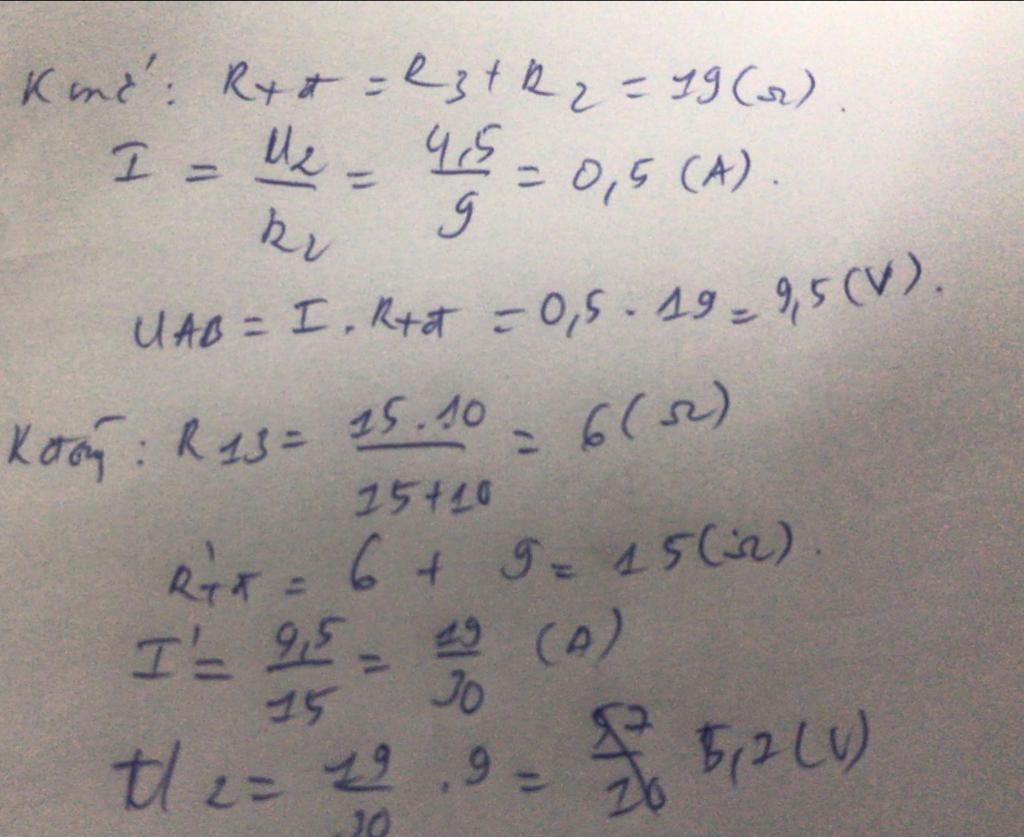 K mở: Rtđ = R3 + R2 = 19(Ω).
I = U2/R2 = 4,5/9 = 0,5 (A).
UAB = I . Rtđ = 0,5 . 19 = 9,5 (V).
K đóng: R13 = 15.10/15+10 = 6(Ω)
R'tđ = 6 + 9 = 15(Ω).
I' = 9,5/15 = 19/30 (A)
U2 = 19/30 . 9 = 5,7(V)